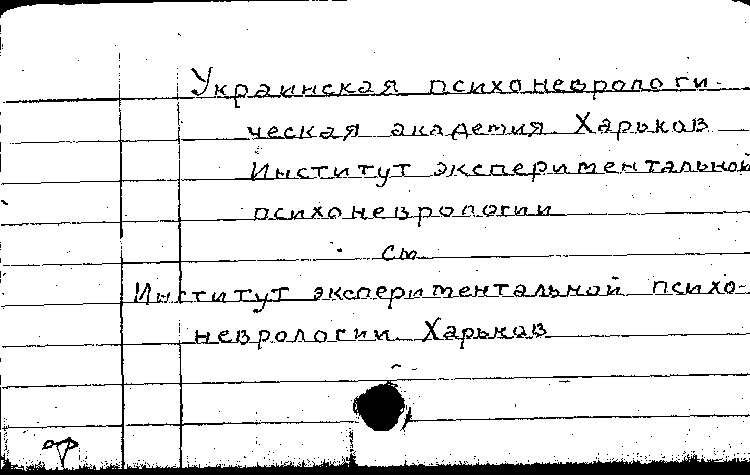 Украинская психоневрологи-
ческая академия. Харьков
Институт экспериментальной
психоневрологии
см.
Институт экспериментальной психо-
неврологии. Харьков